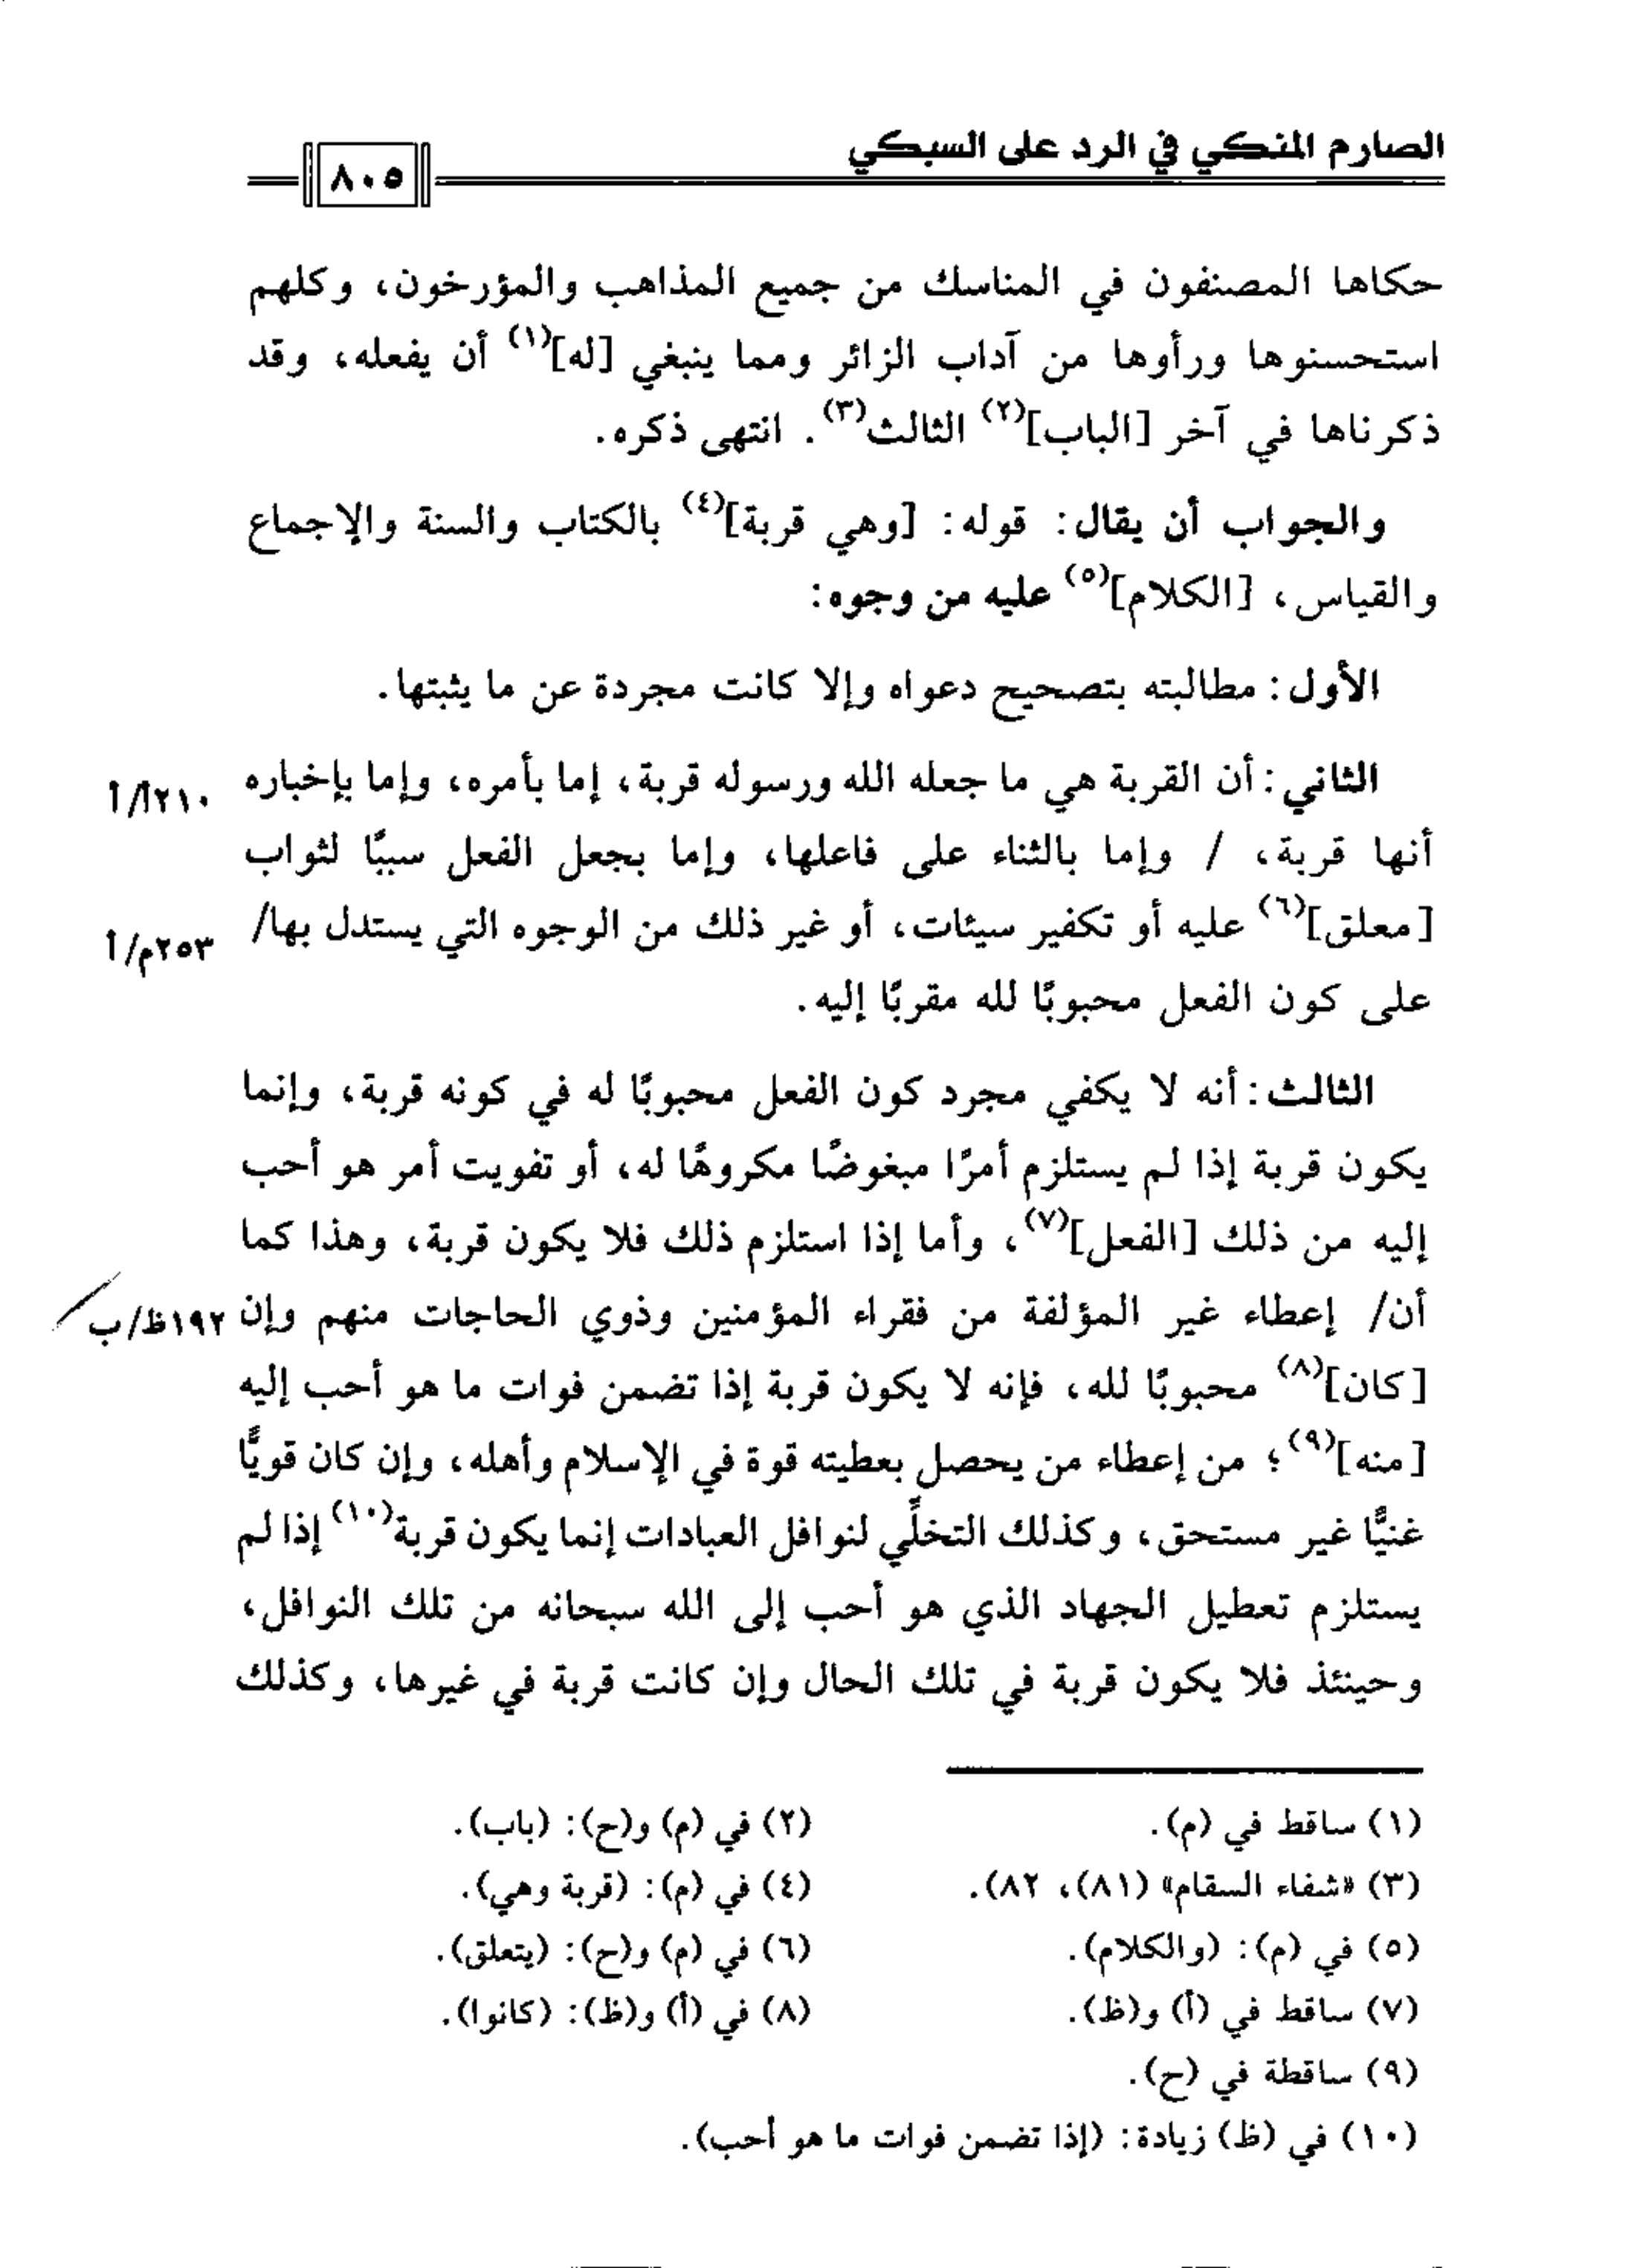 الصارم المنكي في الرد على السبكي
٨٠٥
حكاها المصنفون في المناسك من جميع المذاهب والمؤرخون، وكلهم
استحسنوها ورأوها من آداب الزائر ومما ينبغي [له](١) أن يفعله، وقد
ذكرناها في آخر [الباب](٢) الثالث(٣). انتهى ذكره.
والجواب أن يقال: قوله: [وهي قربة](٤) بالكتاب والسنة والإجماع
والقياس، [الكلام](٥) عليه من وجوه:
الأول: مطالبته بتصحيح دعواه وإلا كانت مجردة عن ما يثبتها.
الثاني: أن القربة هي ما جعله الله ورسوله قربة، إما بأمره، وإما بإخباره ٢١٠أ/أ
أنها قربة، / وإما بالثناء على فاعلها، وإما بجعل الفعل سببًا لثواب
[معلق](٦) عليه أو تكفير سيئات، أو غير ذلك من الوجوه التي يستدل بها/ ٢٥٣م/أ
على كون الفعل محبوبًا لله مقربًا إليه.
الثالث: أنه لا يكفي مجرد كون الفعل محبوبًا له في كونه قربة، وإنما
يكون قربة إذا لم يستلزم أمرًا مبغوضًا مكروهًا له، أو تفويت أمر هو أحب
إليه من ذلك [الفعل](٧)، وأما إذا استلزم ذلك فلا يكون قربة، وهذا كما
أن/ إعطاء غير المؤلفة من فقراء المؤمنين وذوي الحاجات منهم وإن ١٩٢ظ/ب
[كان](٨) محبوبًا لله، فإنه لا يكون قربة إذا تضمن فوات ما هو أحب إليه
[منه](٩)؛ من إعطاء من يحصل بعطيته قوة في الإسلام وأهله، وإن كان قويًّا
غنيًّا غير مستحق، وكذلك التخلِّي لنوافل العبادات إنما يكون قربة(١٠) إذا لم
يستلزم تعطيل الجهاد الذي هو أحب إلى الله سبحانه من تلك النوافل،
وحينئذ فلا يكون قربة في تلك الحال وإن كانت قربة في غيرها، وكذلك
(١) ساقط في (م).
(٢) في (م) و(ح): (باب).
(٣) «شفاء السقام» (٨١)، ٨٢).
(٤) في (م): (قربة وهي).
(٥) في (م): (والكلام).
(٦) في (م) و(ح): (يتعلق).
(٧) ساقط في (أ) و(ظ).
(٨) في (أ) و(ظ): (كانوا).
(٩) ساقطة في (ح).
(١٠) في (ظ) زيادة: (إذا تضمن فوات ما هو أحب).